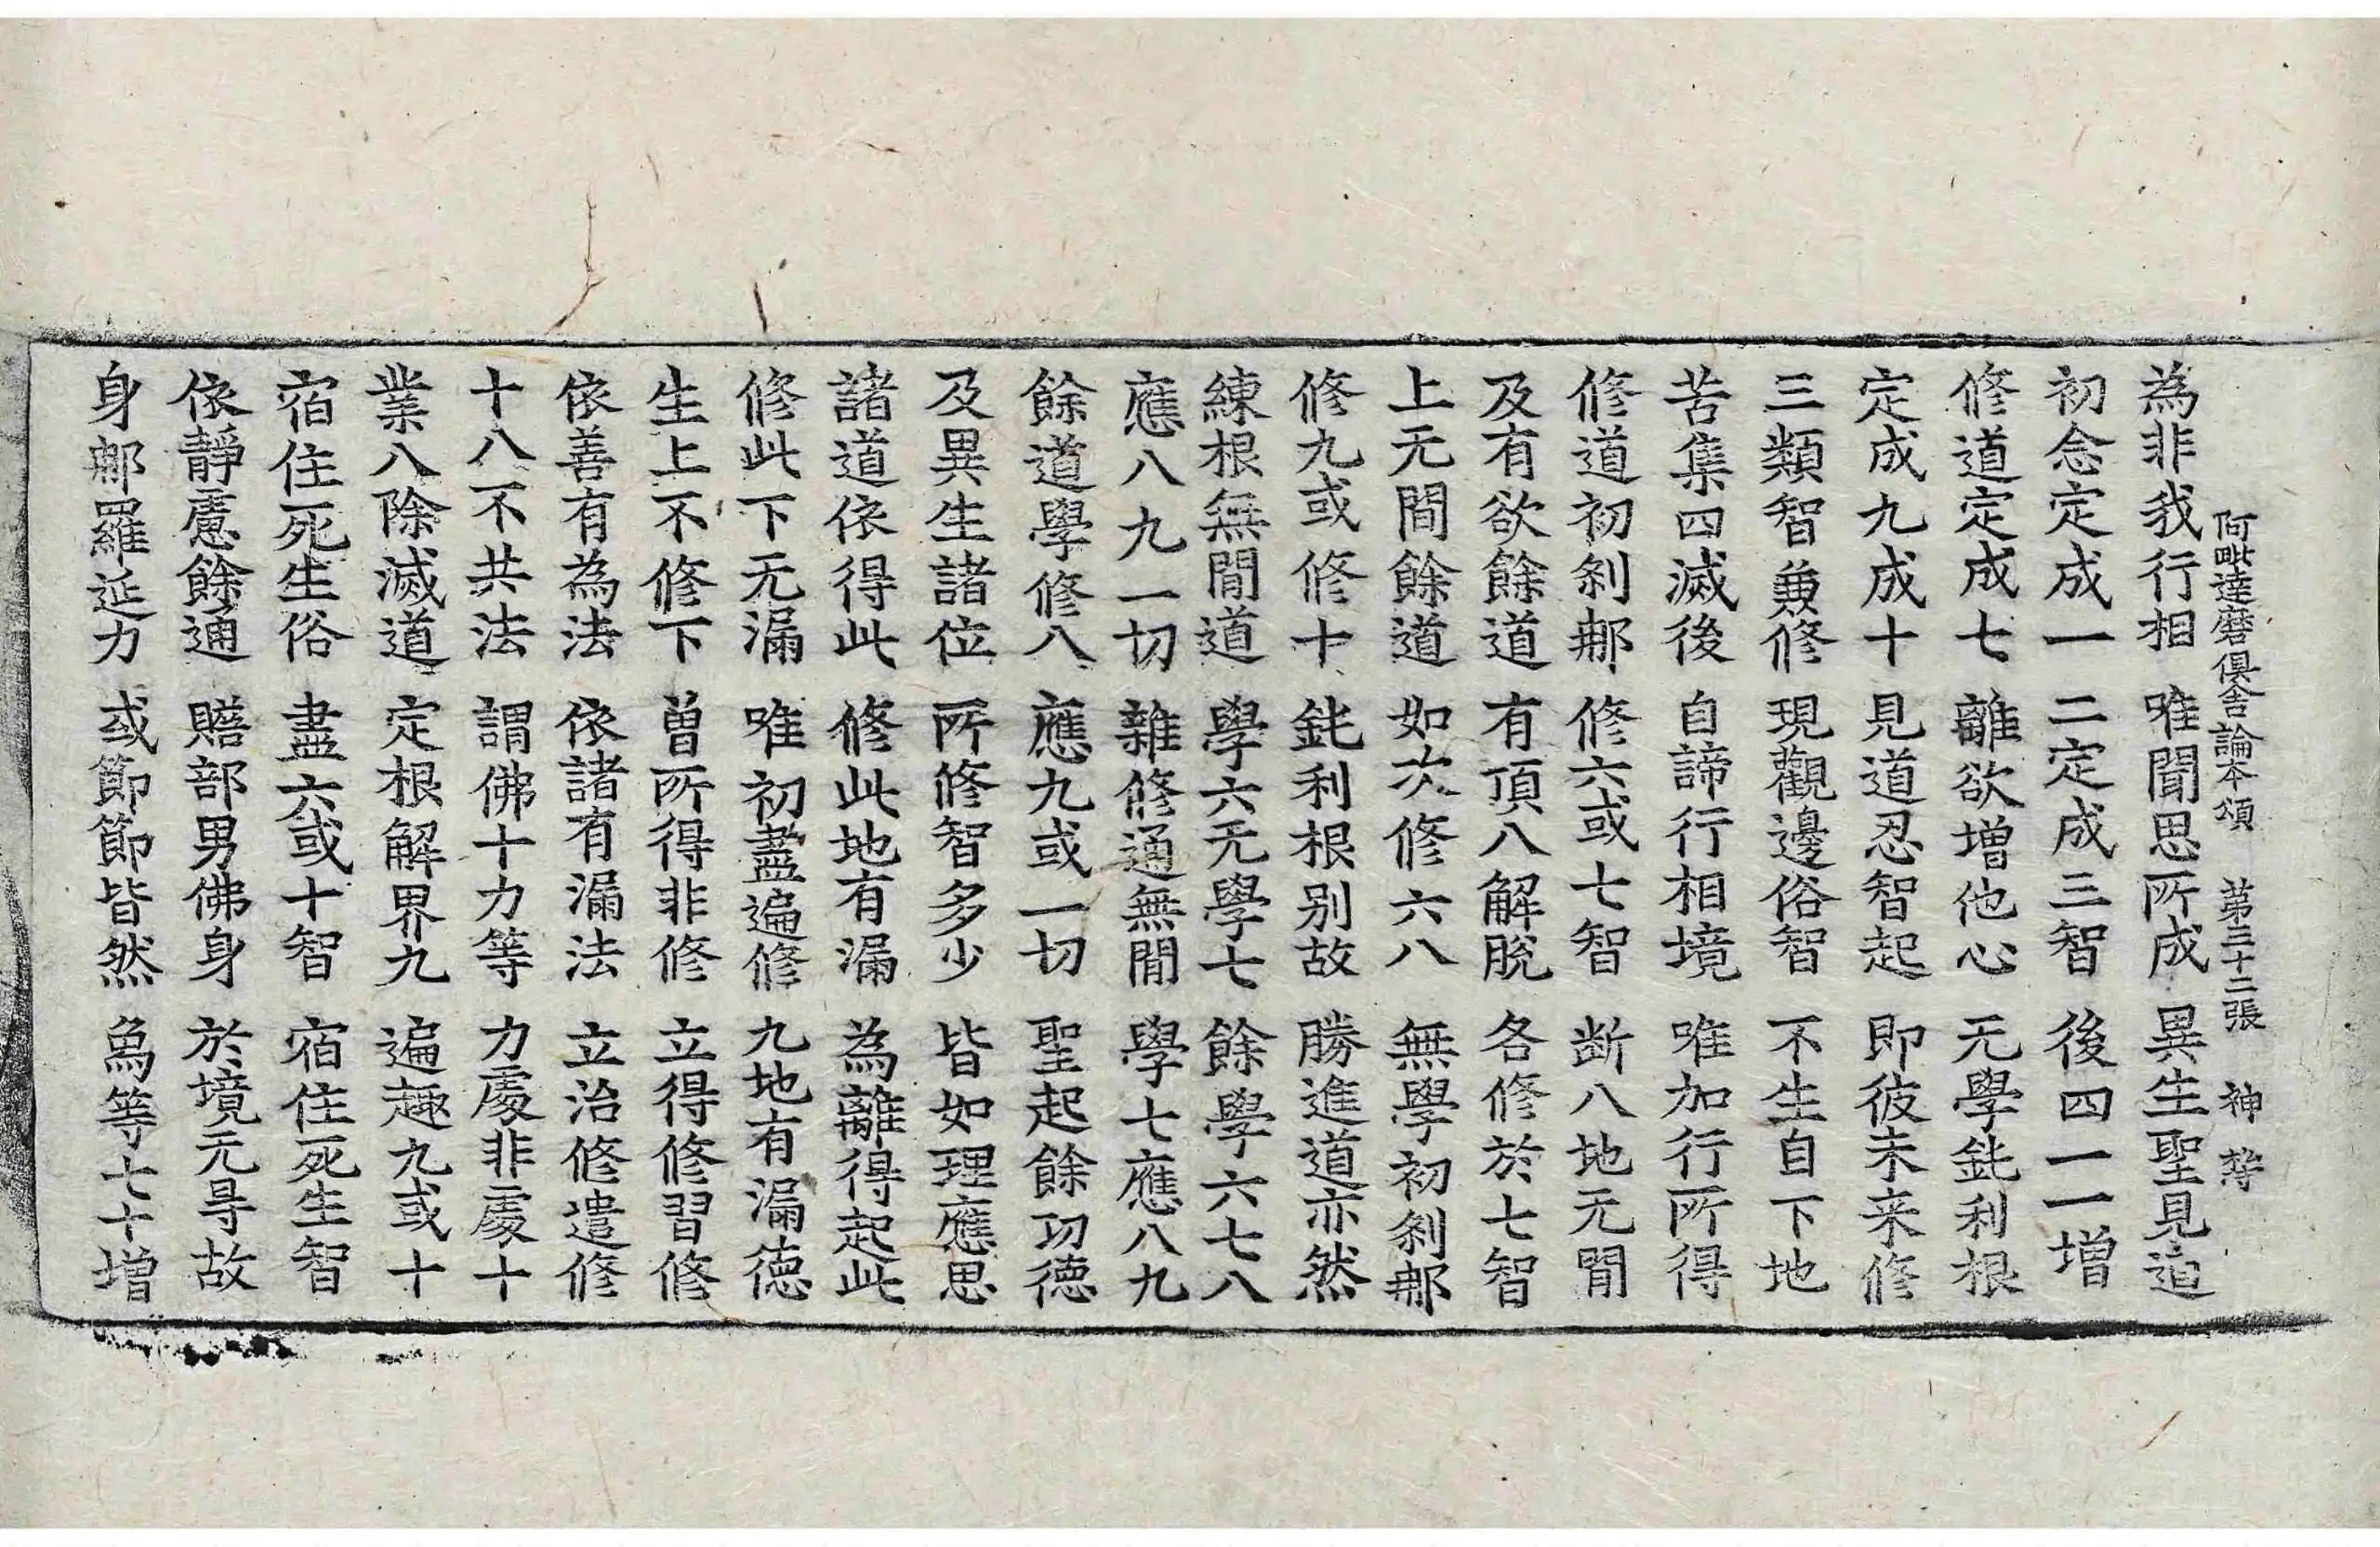 阿毗達磨俱舍論本頌 第三十二張 神
為非我行相 唯聞思所成 異生聖見道
初念定成一 二定成三智 後四一一增
修道定成七 離欲增他心 无學鈍利根
定成九成十 見道忍智起 即彼未来修
三類智兼修 現觀邊俗智 不生自下地
苦集四滅後 自諦行相境 唯加行所得
修道初剎那 修六或七智 断八地无閒
及有欲餘道 有頂八解脫 各修於七智
上无閒餘道 如次修六八 無學初剎那
修九或修十 鈍利根別故 勝進道亦然
練根無閒道 學六无學七 餘學六七八
應八九一切 雜修通無閒 學七應八九
餘道學修八 應九或一切 聖起餘功德
及異生諸位 所修智多少 皆如理應思
諸道依得此 修此地有漏 為離得起此
修此下无漏 唯初盡遍修 九地有漏德
生上不修下 曾所得非修 立得修習修
依善有為法 依諸有漏法 立治修遣修
十八不共法 謂佛十力等 力處非處十
業八除滅道 定根解界九 遍趣九或十
宿住死生俗 盡六或十智 宿住死生智
依靜慮餘通 贍部男佛身 於境无㝵故
身那羅延力 或節節皆然 象等七十增